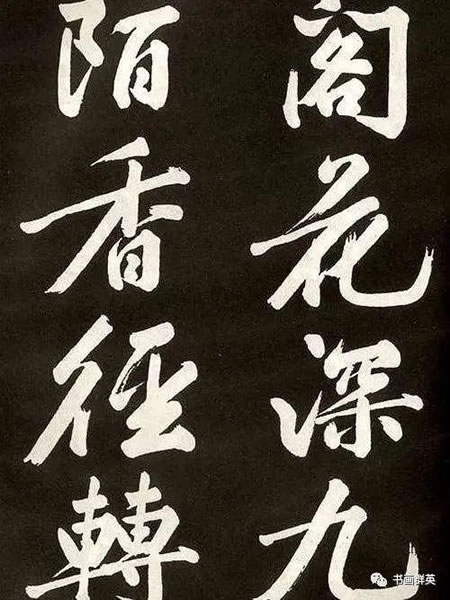 閣花深九
陌香徑轉
书画群英